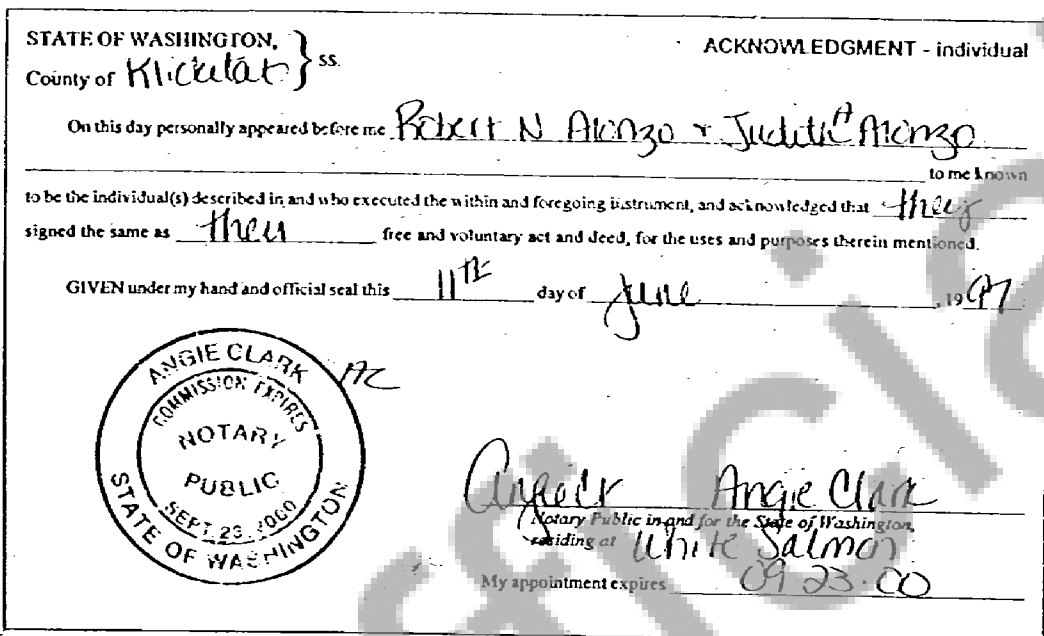 STATE OF WASHINGTON,
ACKNOWLEDGMENT - individual
County of Klickitat } ss.
On this day personally appeared before me Robert N Alonzo + Judith A Alonzo
to me known
to be the individual(s) described in and who executed the within and foregoing instrument, and acknowledged that they
signed the same as their free and voluntary act and deed, for the uses and purposes therein mentioned.
GIVEN under my hand and official seal this 11th day of June, 1997
ANGIE CLARK
AC
COMMISSION EXPIRES
NOTARY
PUBLIC
SEPT. 23, 2000
STATE OF WASHINGTON
Angie Clark
Notary Public in and for the State of Washington,
residing at White Salmon
My appointment expires 09-23-00